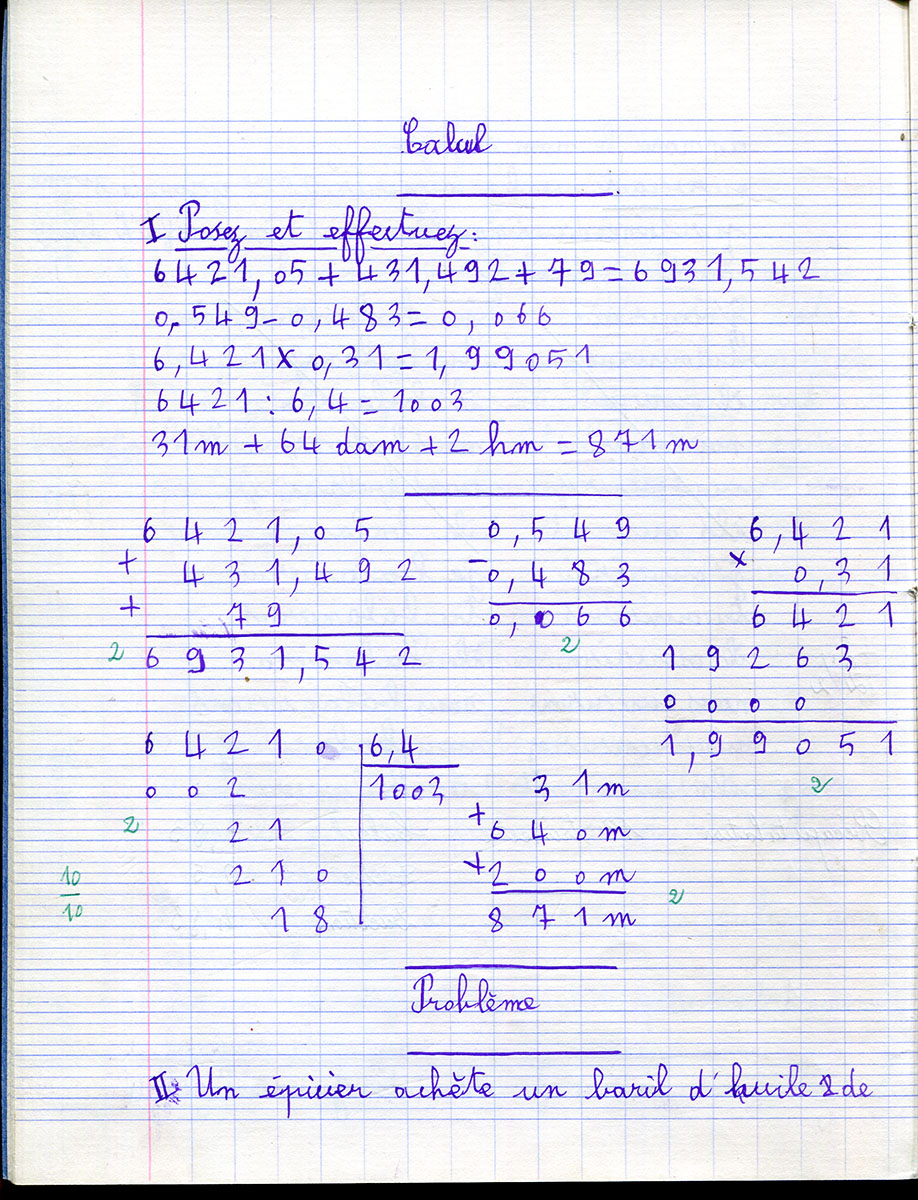 Calcul
I Posez et effectuez :
6421,05 + 431,492 + 79 = 6931,542
0,549 - 0,483 = 0,066
6,421 x 0,31 = 1,99051
6421 : 6,4 = 1003
31m + 64 dam + 2 hm = 871m
6421,05 0,549 6,421
+ 431,492 - 0,483 x 0,31
+ 79 0,066 6421
2 6931,542 2 19263
0000
64210 6,4 1,99051
002 1003 31m 2
2 21 + 640m
10/10 210 + 200m 2
18 871m
Problème
II Un épicier achète un baril d'huile de